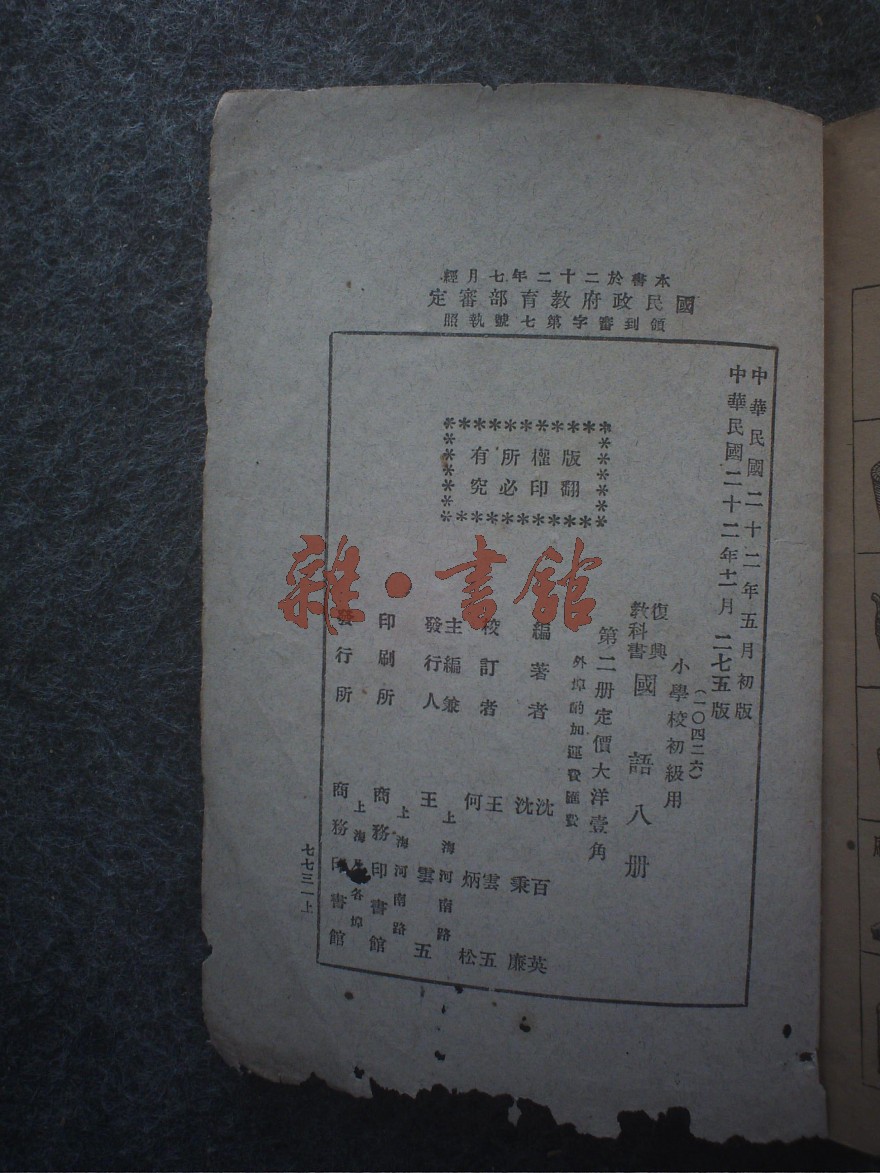 本書於二十二年七月經
國民政府教育部審定
領到審字第七號執照
中華民國二十二年五月初版
中華民國二十二年十二月二七五版
(一〇四二六)
小學校初級用
復興
教科書
國語八册
第二册定價大洋壹角
外埠酌加運費匯費
版權所有
翻印必究
編著者
沈百英
沈秉廉
校訂者
王雲五
何炳松
主編兼
發行人
上海河南路
王雲五
印刷所
上海河南路
商務印書館
發行所
上海及各埠
商務印書館
七七三一上
雜·書館